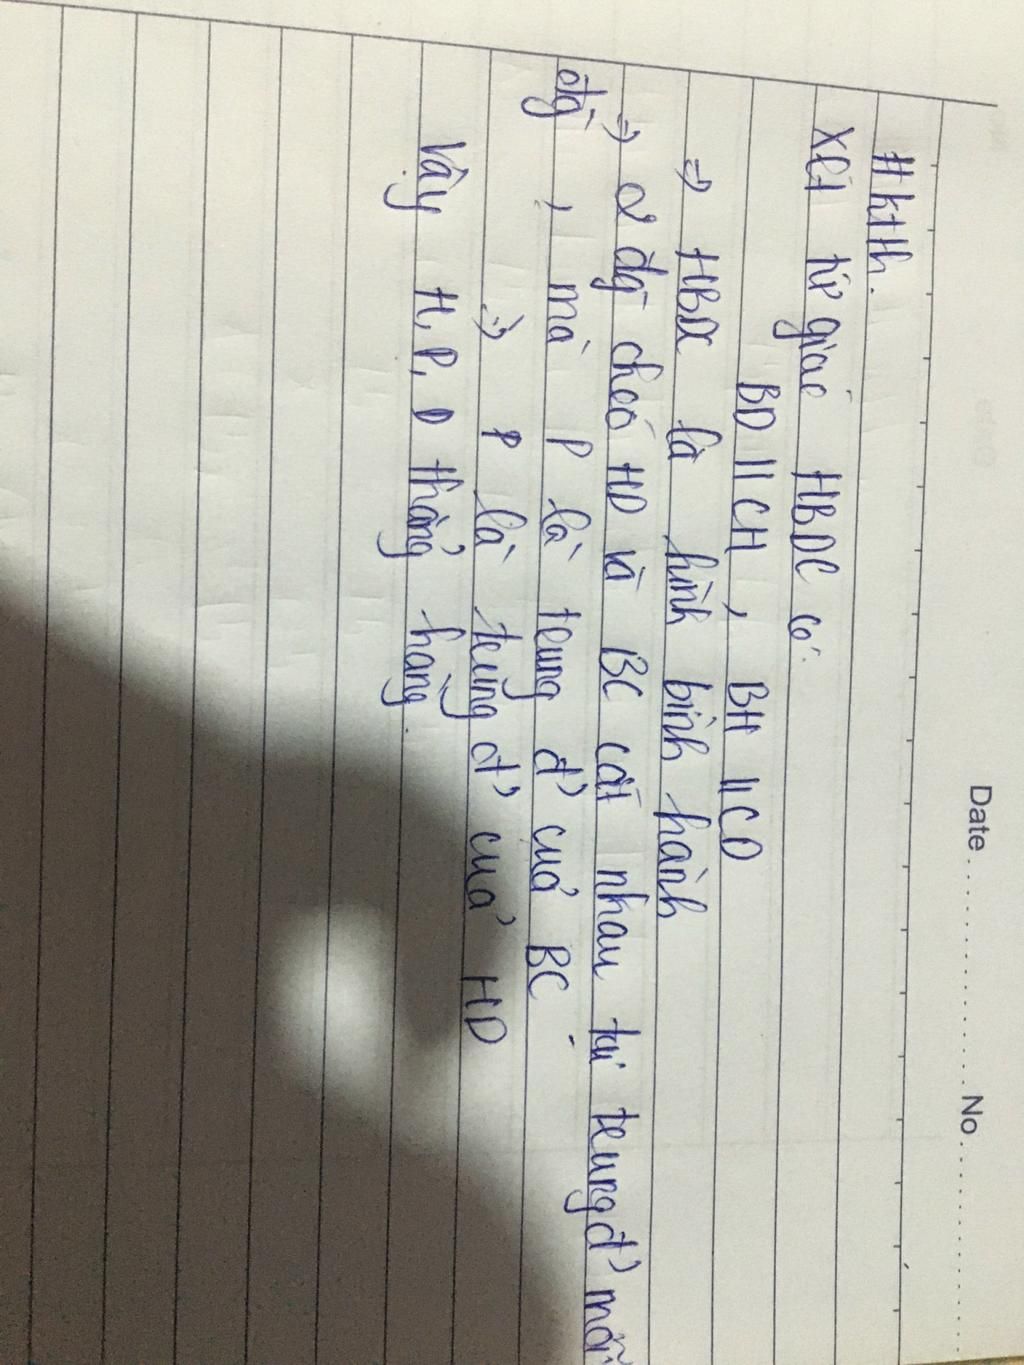 Date No
# ktth.
Xét tứ giác HBDC có:
BD // CH, BH // CD
=> HBDC là hình bình hành
=> 2 đg chéo HD và BC cắt nhau tại trung đ' mỗi
đg, mà P là trung đ' của BC
=> P là trung đ' của HD
Vậy H, P, D thẳng hàng.